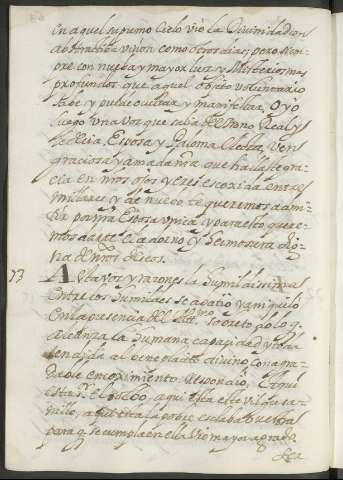 en aquel supremo cielo vio la Divinidad con
abstractiva vision como otros dias; pero siem-
pre con nueba y mayor luz, y Misterios mas
profundos que aquel objeto voluntario
sabe y puede ocultar y manifestar. Oyó
luego una voz que salia del trono Real y
le decia, Esposa y Paloma electa, ven
graciosa y amada nra. que hallaste gra-
cia en nros ojos y eres escoxida entre
millares y de nuevo te queremos admi-
tir por nra Esposa unica, y para esto quere-
mos darte el adorno y hermosura dig-
na de nros deseos.
73 A esta voz y razones la humildissima
entre los humildes se abatio y aniquiló
en la presencia del Altmo. sobre todo lo q.
alcanza la humana capacidad, y toda
rendida al beneplacito divino con agra-
dable encogimiento respondió, Aqui
está Sr. el polvo, aqui está este vil gusa-
nillo, aqui está la pobre esclava buestra
para q. se cumpla en ella vro mayor agrado.